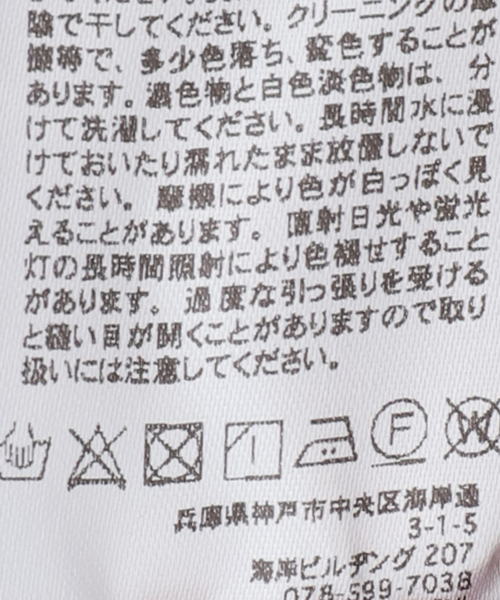 陰で干してください。クリーニングの摩
擦等で、多少色落ち、変色することが
あります。濃色物と白色淡色物は、分
けて洗濯してください。長時間水に浸
けておいたり濡れたまま放置しないで
ください。摩擦により色が白っぽく見
えることがあります。直射日光や蛍光
灯の長時間照射により色褪せすること
があります。過度な引っ張りを受ける
と縫い目が開くことがありますので取り
扱いには注意してください。
F
W
兵庫県神戸市中央区海岸通
3-1-5
海岸ビルヂング 207
078-599-7038